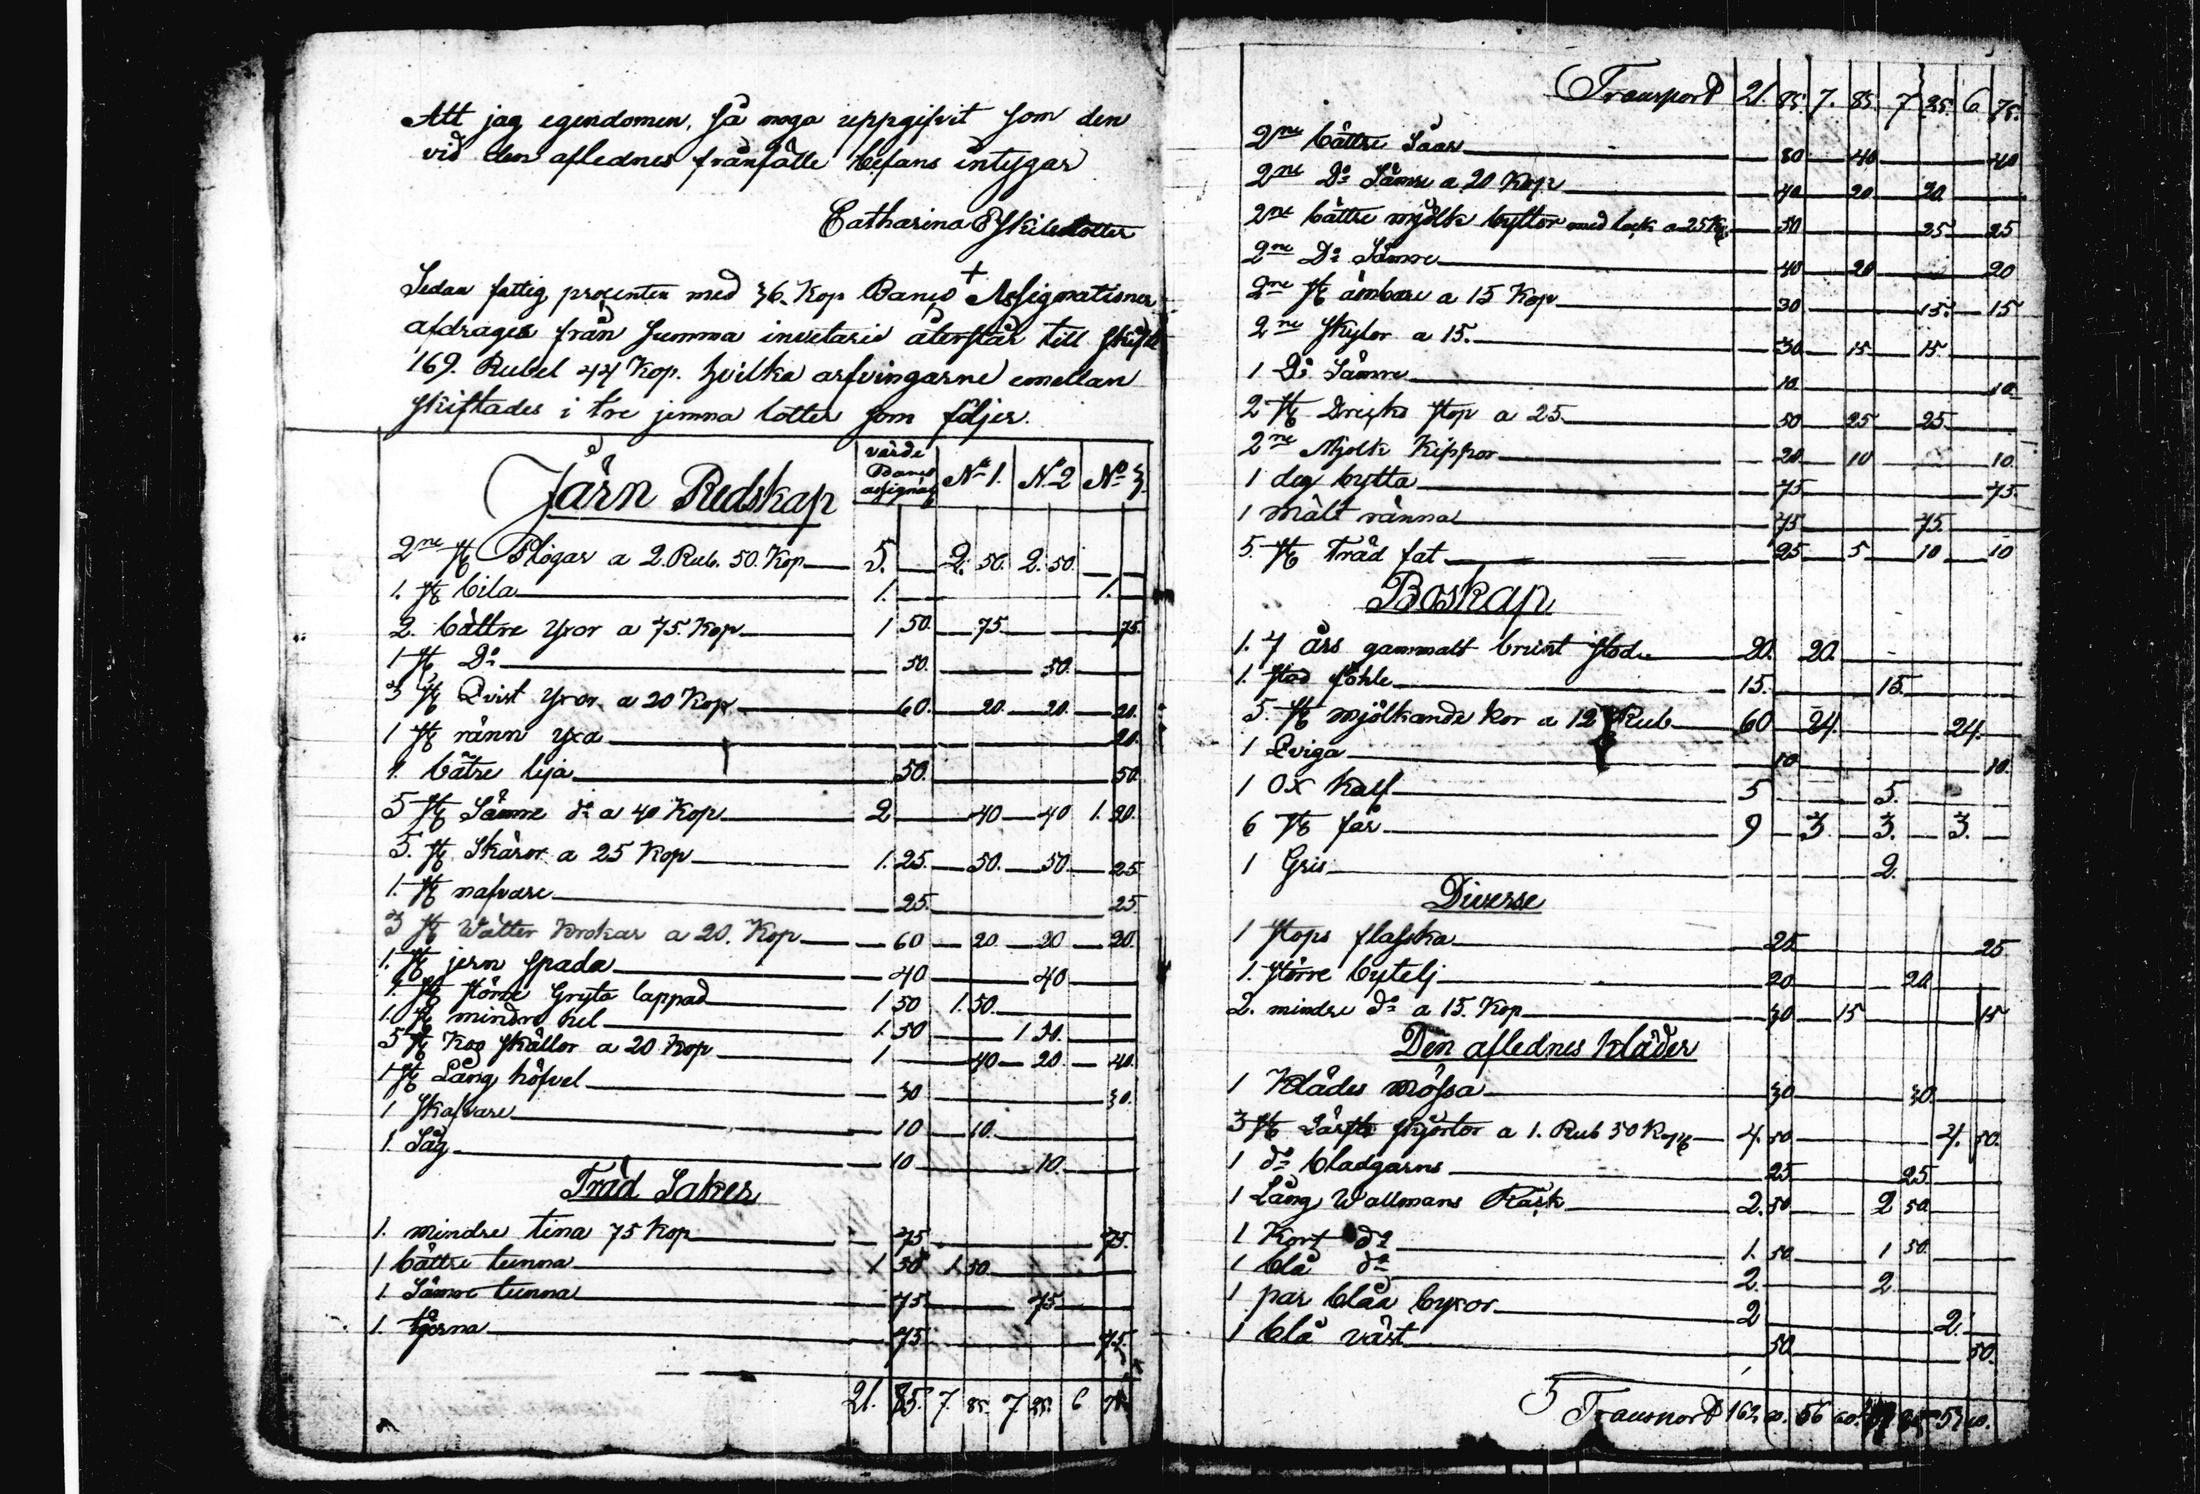 Att jag egendomen, så noga uppgifvit som den
vid den aflednes frånfälle befans intygar
Catharina Eskilsdotter
+
Sedan fattig procenten med 36. Kop Banco Assignationer
afdrages från summa inventarie återstår till skifte
169. Rubel 44 Kop. hvilka arfvingarne emellan
skiftades i tre jemna lotter som följer.
Järn Redskap värde Banco assignat N° 1. N° 2 N° 3.
2ne st Plogar a 2. Rub. 50. Kop 5. 2. 50. 2. 50.
1. st bila 1. 1.
2. bättre yxor a 75. Kop 1 50. 75 75.
1 st D° 50. 50.
3 st Qvist yxor a 20 Kop 60. 20. 20. 20.
1 st ränn yxa 20.
1. bätre lija 50. 50.
5 st Sämre d° a 40 Kop 2 40 40 1. 20.
5. st Skäror a 25 Kop 1. 25. 50. 50. 25
1. st nafvare 25. 25.
3 st Wätter Krokar a 20. Kop 60 20 20 20.
1. st jern spada 40 40
1. st större Gryta lappad 1 50 1. 50.
1. st mindre hel 1. 50 1 50.
5 st Kog skällor a 20 Kop 1 40 20 40.
1 st Lång höfvel 30 30.
1 skafvare 10 10.
1. Såg 10 10.
Träd Saker
1. mindre tina 75 Kop 75 75.
1 bättre tunna 1 50 1. 50.
1. Sämre tunna 75 75
1. tjärna 75 75.
21. 85. 7. 85. 7 25. 6 75.
Transport 21. 85. 7. 85. 7 25. 6 75.
2ne bättre Såar 80 40 40
2ne D° Sämre a 20 Kop 40 20 20.
2ne bättre mjölk byttor med lock a 25 K 50 25 25
2ne D° Sämre 40 20 20
2ne st ämbare a 15 Kop 30 15. 15
2ne skylor a 15. 30 15 15
1 D° Sämre 10 10.
2 st Dricks stop a 25 50 25 25.
2ne Mjölk Kippor 20 10 10.
1 deg bytta 75 75.
1 Mält ränna 75 75.
5. st Träd fat 25 5 10 10
Boskap
1. 7 års gammalt brunt stod 20. 20.
1. stodföhle 15. 15.
5. st mjölkande kor a 12 Rub 60 24. 24.
1 Qviga 10 10.
1 Ox Kalf 5 5.
6 st får 9 3. 3. 3.
1 Gris 2.
Diverse
1 stops flasska 25 25
1. större bytelj 20 20
2. mindre d° a 15. Kop 30 15 15
Den aflednes kläder
1 Klädes mössa 30 30.
3 st Lärfts skjortor a 1. Rub 50 Kop 4. 50 4. 50.
1 d° bladgarns 25 25
1 Lång Wallmans Råck 2. 50 2 50
1 Kort d° 1. 50 1 50.
1 blå d° 2. 2
1 par blåa byxor 2 2.
1 blå väst 50 50.
Transport 162 60. 56 60.